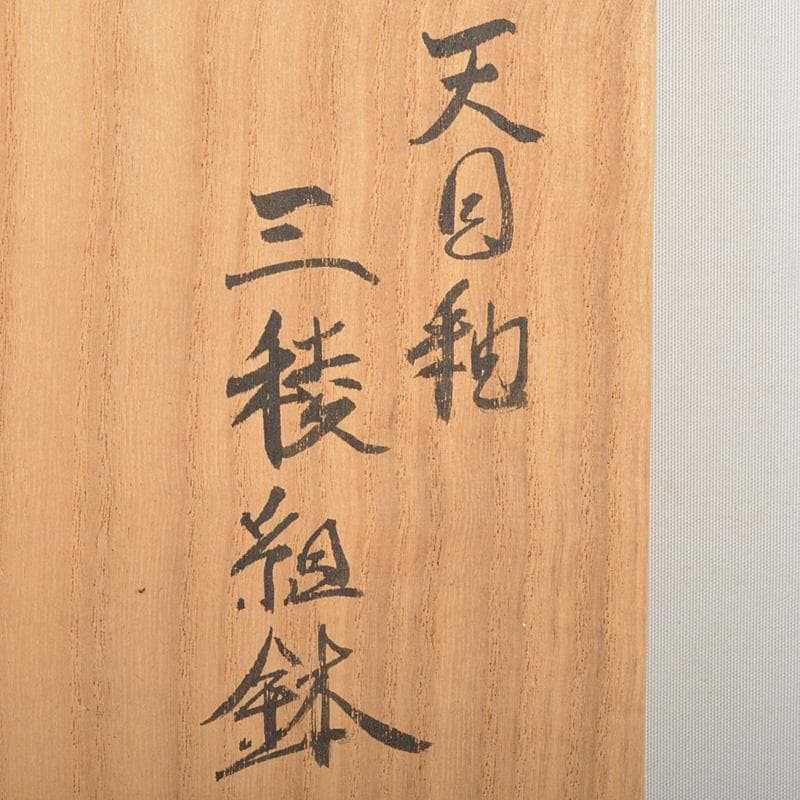 天目釉
三稜組鉢